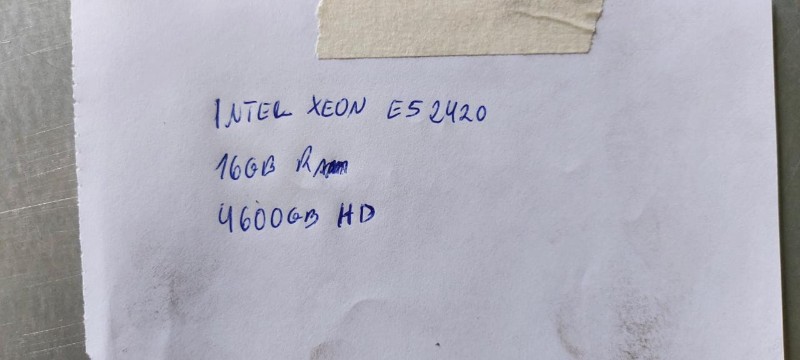 INTEL XEON E5 2420
16GB RAM
4600GB HD